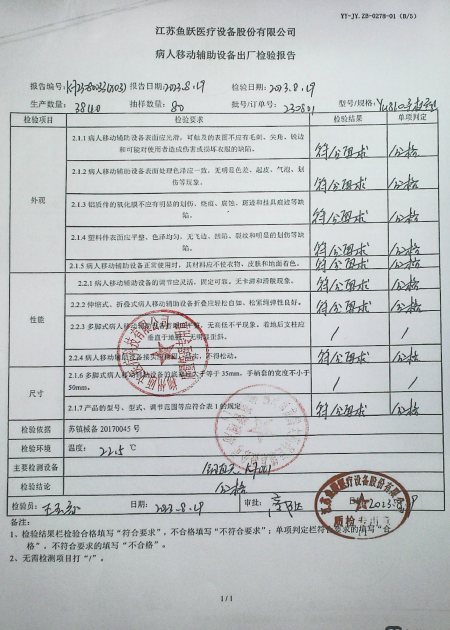 YY-JY.ZB-0278-01 (B/5)
江苏鱼跃医疗设备股份有限公司
病人移动辅助设备出厂检验报告
报告编号: 报告日期:2023.8.19 检验日期:2023.8.19
生产数量: 抽样数量:80 批号/订单号:230801 型号/规格:
检验项目 检验要求 检验结果 单项判定
外观
2.1.1 病人移动辅助设备表面应光滑,可触及的表面不应有毛刺、尖角、锐边
和可能对使用者造成伤害或损坏衣服的缺陷。 符合要求 合格
2.1.2 病人移动辅助设备表面处理色泽应一致,无明显色差、起皮、气泡、划
伤等现象。 符合要求 合格
2.1.3 铝质件的氧化膜不应有明显的划伤、烧痕、腐蚀、斑迹和挂具痕迹等缺
陷。 符合要求 合格
2.1.4 塑料件表面应平整、色泽均匀、无飞边、凹陷、裂纹和明显的划伤等缺
陷。 符合要求 合格
2.1.5 病人移动辅助设备正常使用时,其材料应不使衣物、皮肤和地面着色。 符合要求 合格
性能
2.2.1 病人移动辅助设备的调节应灵活,固定可靠,无卡滞和滑脱现象。 符合要求 合格
2.2.2 伸缩式、折叠式病人移动辅助设备折叠应轻松自如、松紧纯弹性良好。 符合要求 合格
2.2.3 多脚式病人移动 无高低不平现象,着地后支柱应
垂直于地 无明显歪斜。 / /
2.2.4 病人移动辅助设备接头 不得松动。 符合要求 合格
尺寸
2.1.6 多脚式病人移动辅助设备的底 大于等于 35mm,手柄套的宽度不小于
50mm。 / /
2.1.7 产品的型号、型式、调节范围等应符合表 1 的规定 符合要求 合格
检验依据 苏镇械备 20170045 号
检验环境 温度: 22.5 ℃
主要检测设备
检验结论 合格
检验员: 日期: 2023.8.19 审批: 日 2023.8.19
江苏鱼跃医疗设备股份有限公司
质检专用章
备注:
1、检验结果栏检验合格填写“符合要求”,不合格填写“不符合要求”;单项判定栏符合要求的填写“合
格”,不符合要求的填写“不合格”。
2、无需检测项目打“/”。
1 / 1